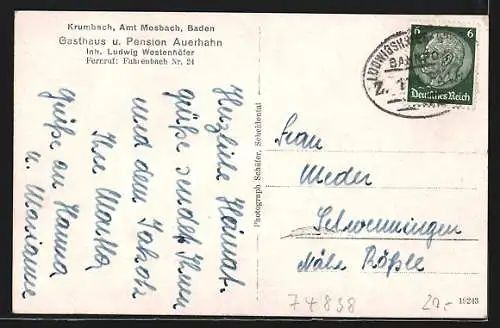 Krumbach, Amt Mosbach, Baden
Gasthaus u. Pension Auerhahn
Inh. Ludwig Westenhöfer
Fernruf: Fahrenbach Nr. 24
Herzliche Heimat-
grüße sendet Ihnen
und dem Jakob
Ihre Martha
Grüße an Hanna
u. Marianne
Photograph Schäfer, Scheidental
LUDWIGSH
BAHNPOST
Z.
6 6
Deutsches Reich
Frau
Weder
Schwenningen
Nähe Rößle
19243
74838
20.-